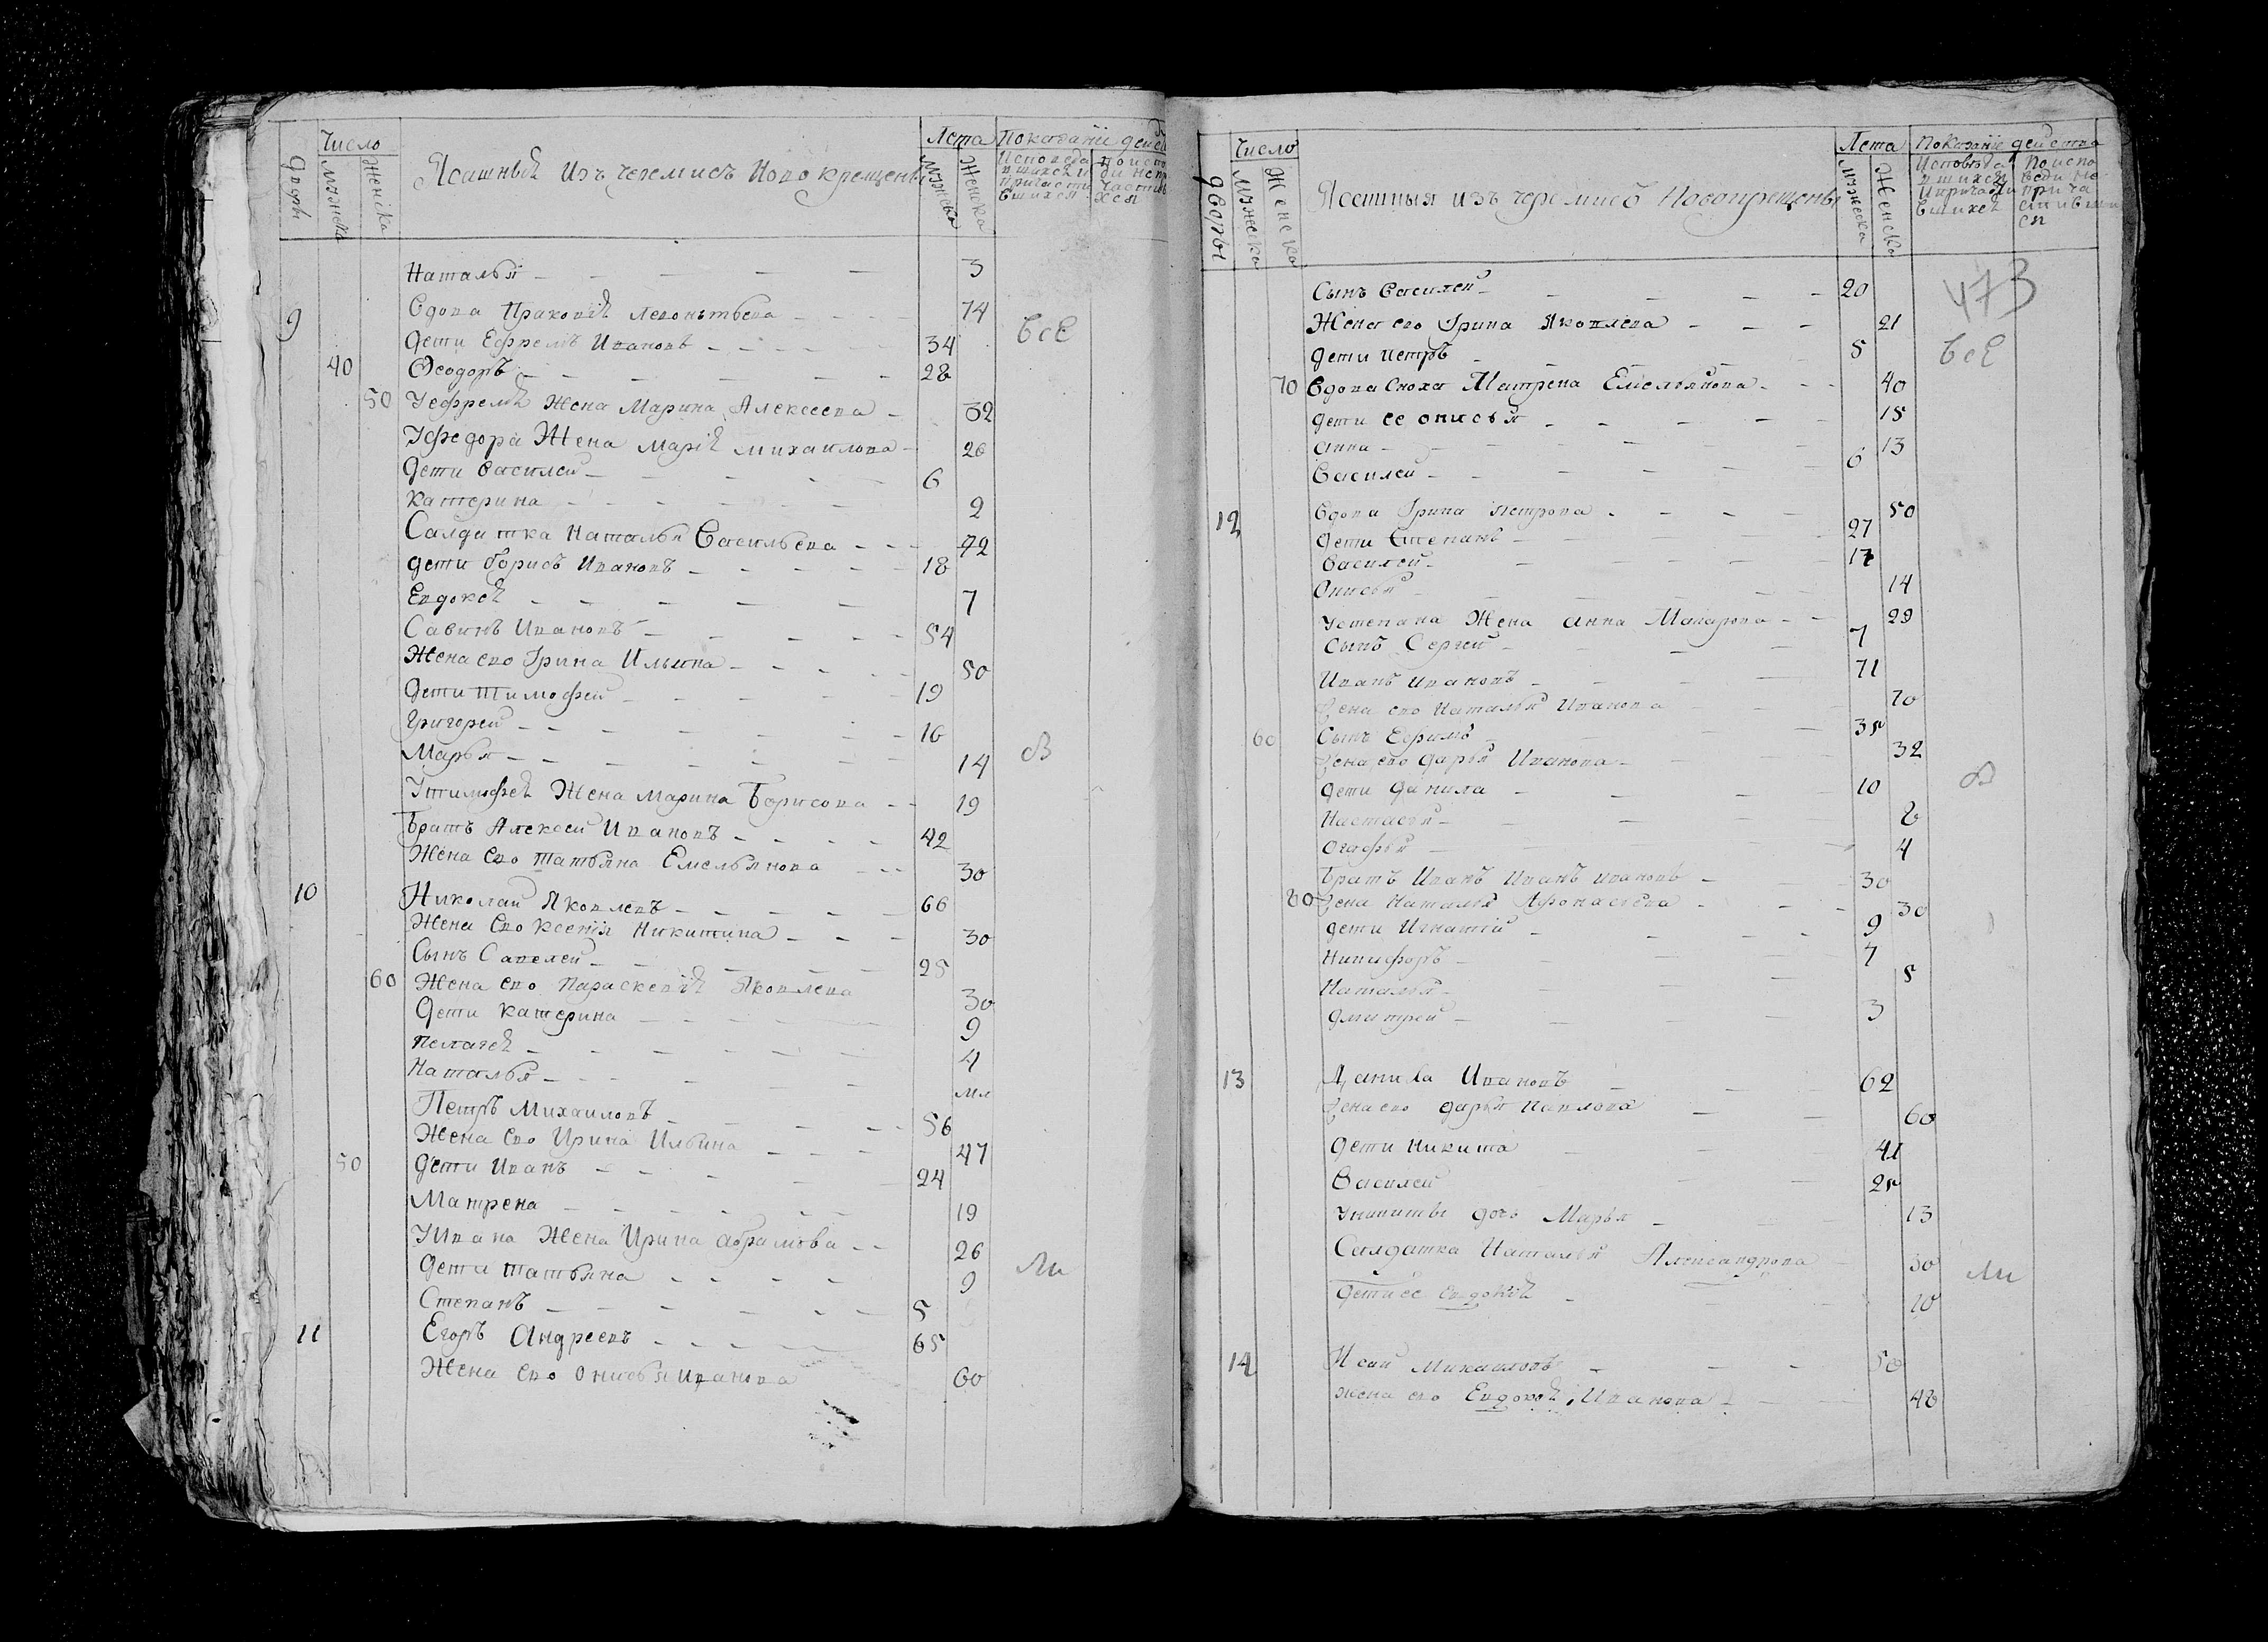 Дворы Число Мужеска Женска Ясашныя Изъ черемисъ Новокрещены Лета Мужеска Женска Показаніи дейс
Исповеда вшихся и причасти вшихся
Наталья 3
9 Вдова Праковія Леонтьева 74 все
дети Ефремъ Ивановъ 34
40 Ѳеодоръ 28
50 Уефрема Жена Марина Алексеева 32
Уфедора Жена Марія михаилова 26
дети василеи 6
катерина 2
Салдатка Наталья Васильева 42
дети борисъ Ивановъ 18
Евдокея 7
Савинъ Ивановъ 54
Жена ево Ирина Ильина 50
дети тимофеи 19
Григореи 16
Марья 14 в
Утимофея Жена Марина Борисова 19
Братъ Алексеи Ивановъ 42
Жена Ево татьяна Емельянова 30
10 Николаи Яковлевъ 66
Жена Ево ксенія Никитина 30
Сынъ Савелеи 25
60 Жена Ево Параскевія Яковлева 30
дети катерина 9
пелагея 4
Наталья мл
Петръ Михаиловъ 56
Жена Ево Ирина Ильина 47
50 дети Иванъ 24
Матрена 19
УИвана Жена Ирина абрамова 26
дети татьяна 9 ли
Степанъ 5
11 Егоръ Андреевъ 65
Жена Ево онисья Иванова 60
дворы Число Мужеска Женска Ясашныя изъ черемисъ Новокрещены Лета Мужеска Женска Показаніе действа
Исповеда вшихся и причасти вшихся По испо веди не прича стивши ся
Сынъ василеи 20 473
Жена ево Ирина Яковлева 21
дети петръ 5 все
70 вдова сноха Матрена Емельянова 40
дети ее онисья 15
анна 13
Василеи 6
12 вдова Ирина петрова 50
дети Степанъ 27
Василеи 17
Онисья 14
Устепана Жена анна Макарова 29
сынъ Сергеи 7
Иванъ ивановъ 71
Жена ево Наталья Иванова 70
60 Сынъ Ефимъ 35
Жена ево дарья Иванова 32
дети данила 10 в
Настасья 8
огафья 4
Братъ Иванъ Иванъ ивановъ 30
80 Жена Наталья Афонасьева 30
дети Игнатіи 9
Никифоръ 7
Наталья 5
дмитреи 3
13 Данила Ивановъ 62
Жена ево дарья павлова 60
дети никита 41
Василеи 25
Уникиты дочь Марья 13
Салдатка Наталья Александрова 30 ли
дети ее Евдокія 10
14 Исаи Михаиловъ 50
жена ево Евдокея Иванова 48